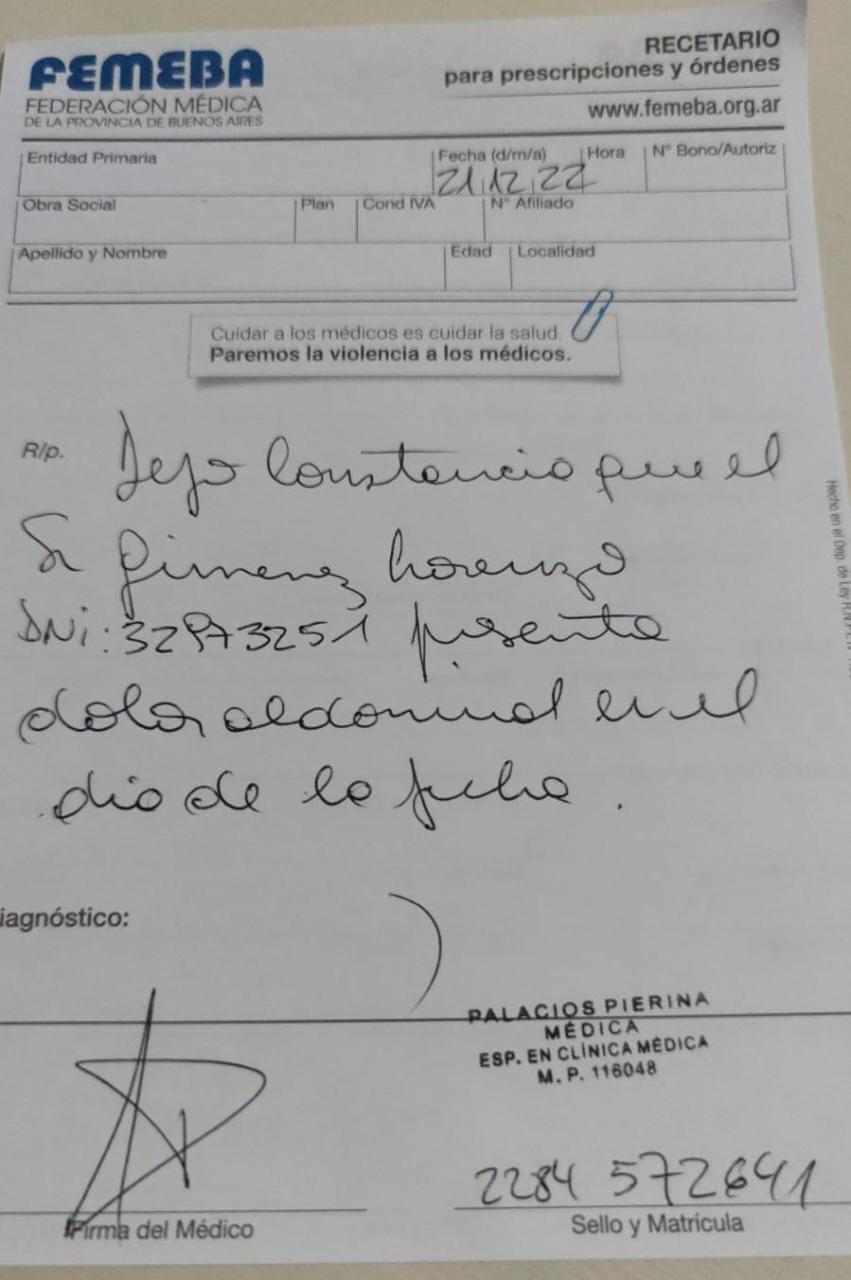 FEMEBA
FEDERACIÓN MÉDICA
DE LA PROVINCIA DE BUENOS AIRES
RECETARIO
para prescripciones y órdenes
www.femeba.org.ar
Entidad Primaria
Fecha (d/m/a) Hora
Nº Bono/Autoriz
21 12 22
Obra Social
Plan
Cond IVA
Nº Afiliado
Apellido y Nombre
Edad
Localidad
Cuidar a los médicos es cuidar la salud.
Paremos la violencia a los médicos.
R/p. Dejo Constancia que el
Sr Gimenez Lorenzo
DNi: 32973251 presenta
dolor abdominal en el
dia de la fecha .
iagnóstico:
PALACIOS PIERINA
MÉDICA
ESP. EN CLÍNICA MÉDICA
M. P. 116048
2284 572641
Firma del Médico
Sello y Matrícula
Hecho en el Dep. de Ley